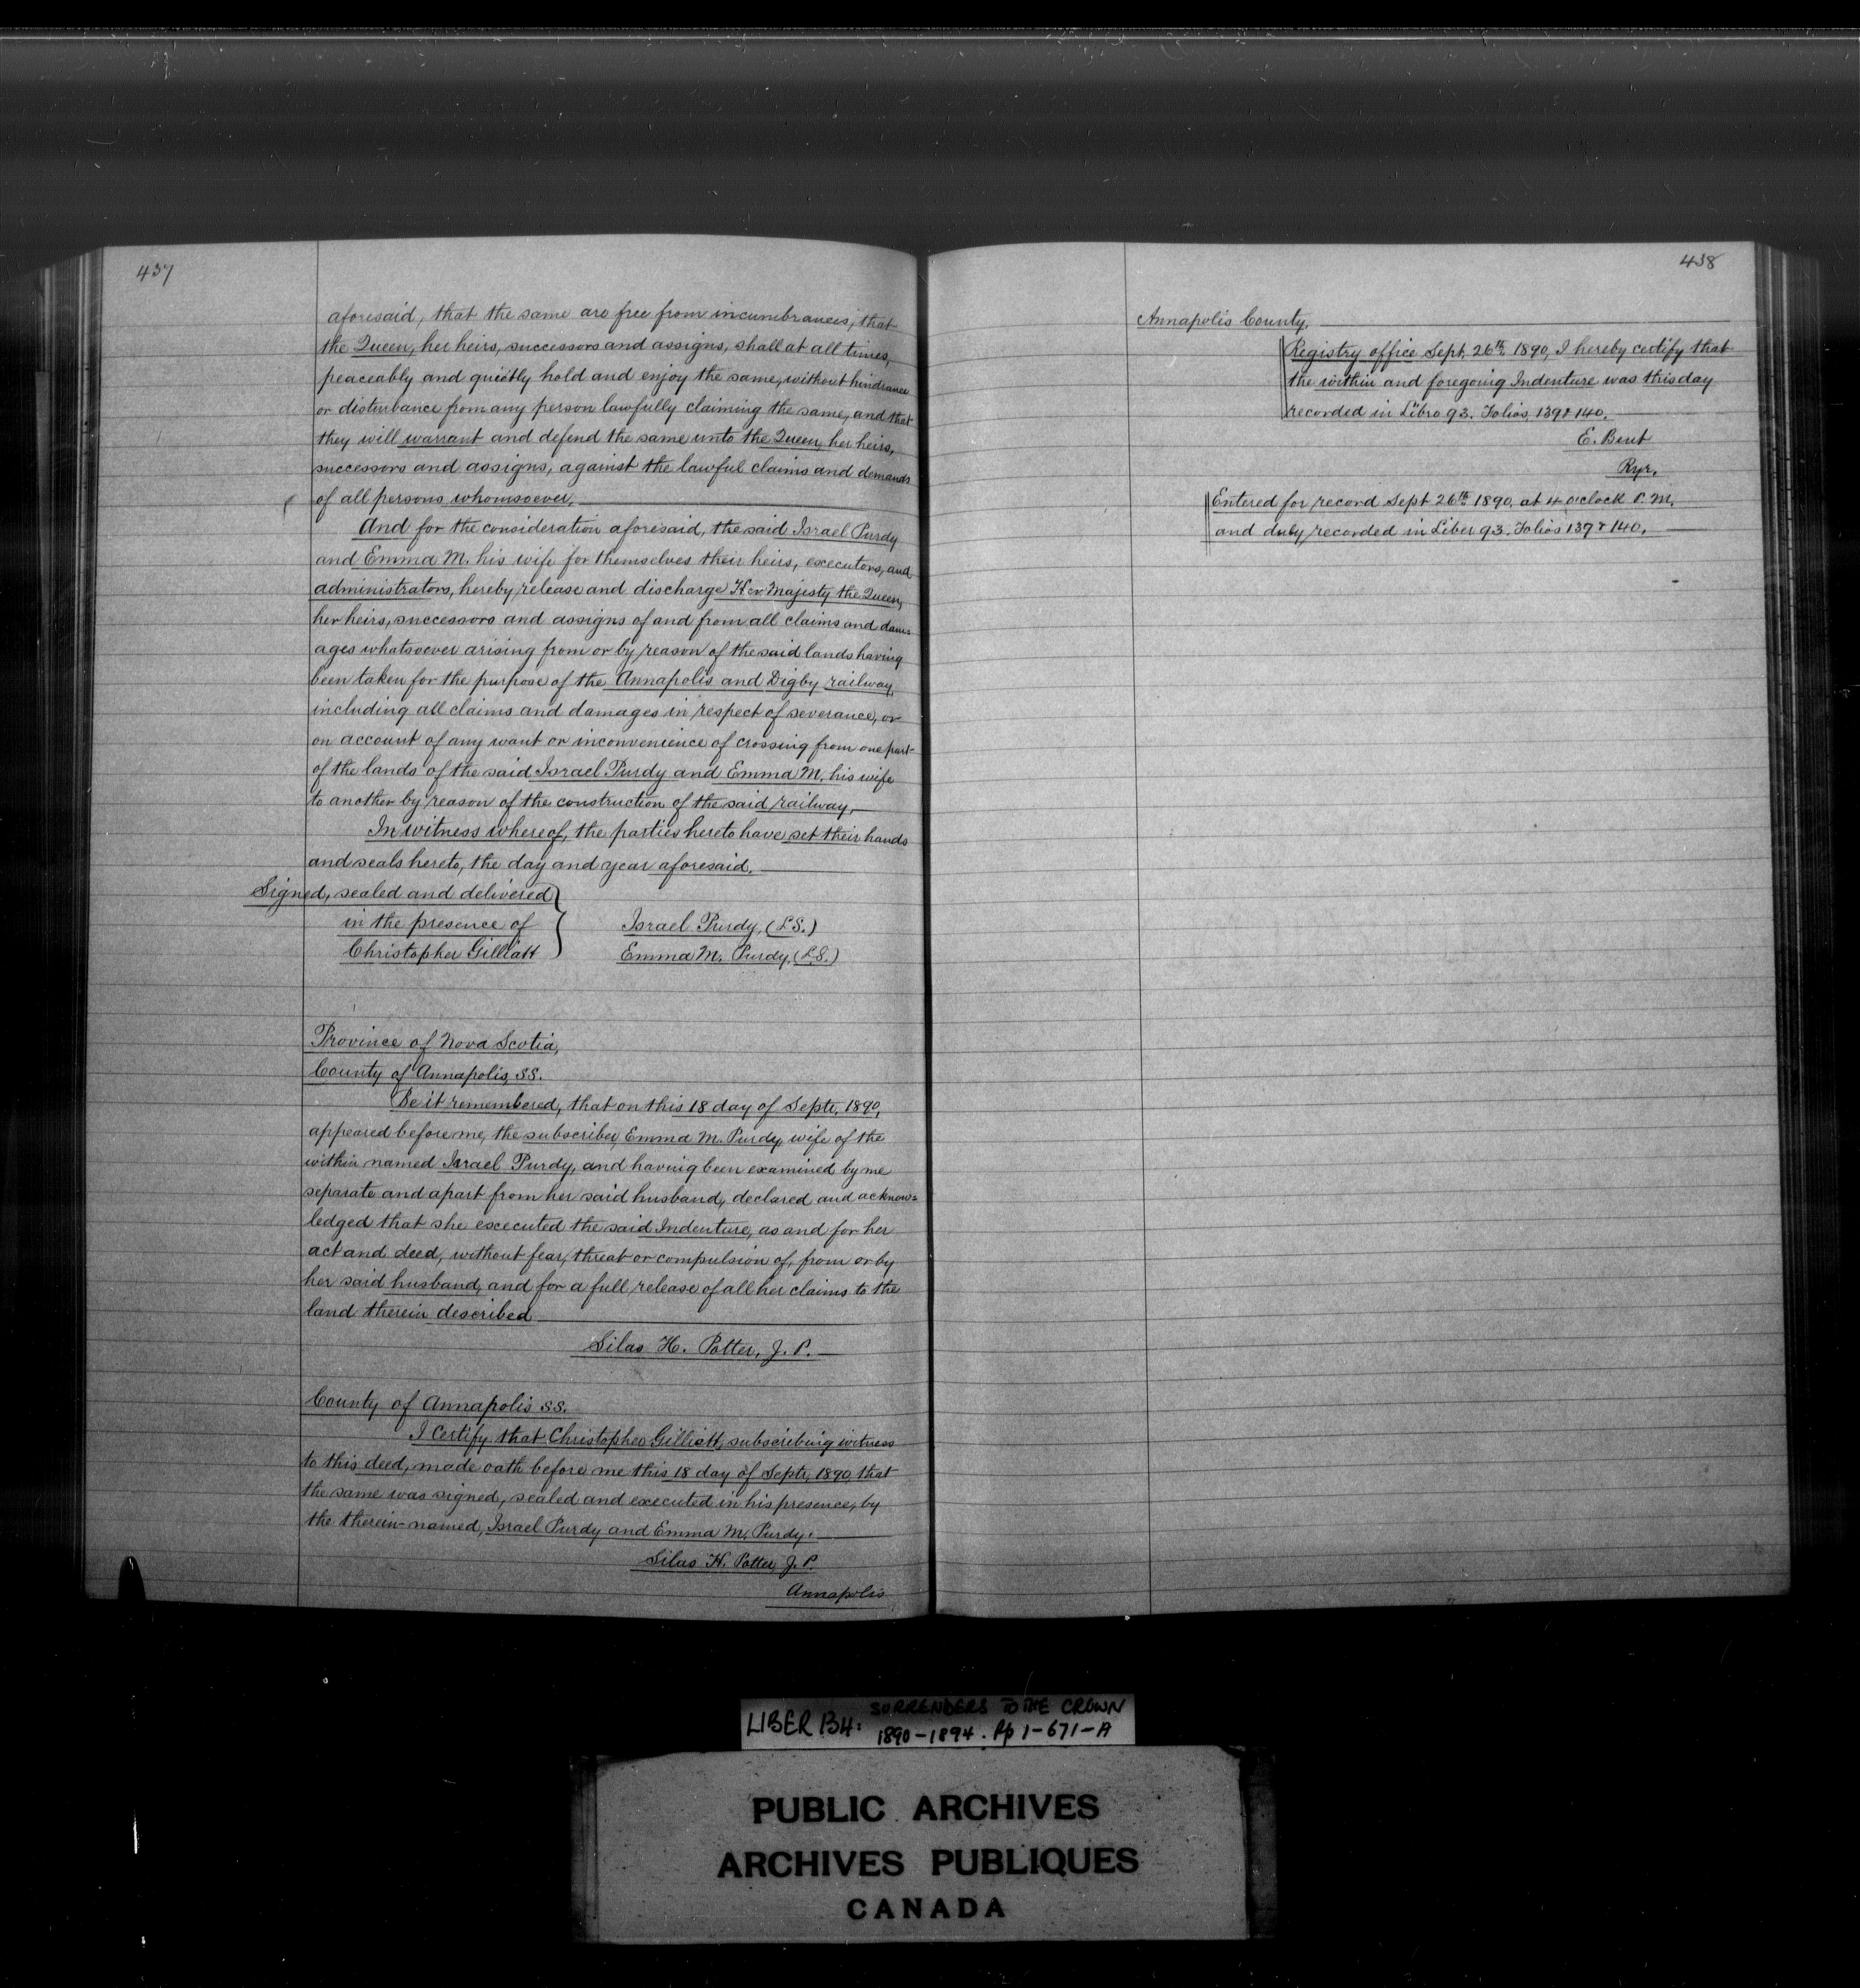 437
aforesaid, that the same are free from incumbrances; that
the Queen, her heirs, successors and assigns, shall at all times,
peaceably and quietly hold and enjoy the same, without hindrance
or disturbance from any person lawfully claiming the same, and that
they will warrant and defend the same unto the Queen, her heirs,
successors and assigns, against the lawful claims and demands
of all persons whomsoever.
And for the consideration aforesaid, the said Israel Purdy
and Emma M. his wife for themselves their heirs, executors, and
administrators, hereby release and discharge Her Majesty the Queen,
her heirs, successors and assigns of and from all claims and dam=
ages whatsoever arising from or by reason of the said lands having
been taken for the purpose of the Annapolis and Digby railway,
including all claims and damages in respect of severance, or
on account of any want or inconvenience of crossing from one part
of the lands of the said Israel Purdy and Emma M. his wife
to another by reason of the construction of the said railway.
In witness whereof, the parties hereto have set their hands
and seals hereto, the day and year aforesaid.
Signed, sealed and delivered
in the presence of
Christopher Gilliatt
Israel Purdy, (L.S.)
Emma M. Purdy, (L.S.)
Province of Nova Scotia,
County of Annapolis, SS.
Be it remembered, that on this 18 day of Septr. 1890,
appeared before me, the subscriber, Emma M. Purdy, wife of the
within named Israel Purdy, and having been examined by me
separate and apart from her said husband, declared and acknow=
ledged that she executed the said Indenture, as and for her
act and deed, without fear, threat or compulsion of, from or by
her said husband, and for a full release of all her claims to the
land therein described
Silas H. Potter, J. P.
County of Annapolis SS.
I Certify that Christopher Gilliatt, subscribing witness
to this deed, made oath before me this 18 day of Septr, 1890, that
the same was signed, sealed and executed in his presence, by
the therein-named, Israel Purdy and Emma M. Purdy.
Silas H. Potter J. P.
Annapolis
438
Annapolis County.
Registry office Sept. 26th 1890, I hereby certify that
the within and foregoing Indenture was this day
recorded in Libro 93. Folios, 139 & 140.
E. Bent
Rgr.
Entered for record Sept 26th 1890. at 4 o'clock P. M.
and duly recorded in Liber 93. Folios 139 & 140.
LIBER B4: SURRENDERS TO THE CROWN
1890-1894. Pp 1-671-A
PUBLIC ARCHIVES
ARCHIVES PUBLIQUES
CANADA